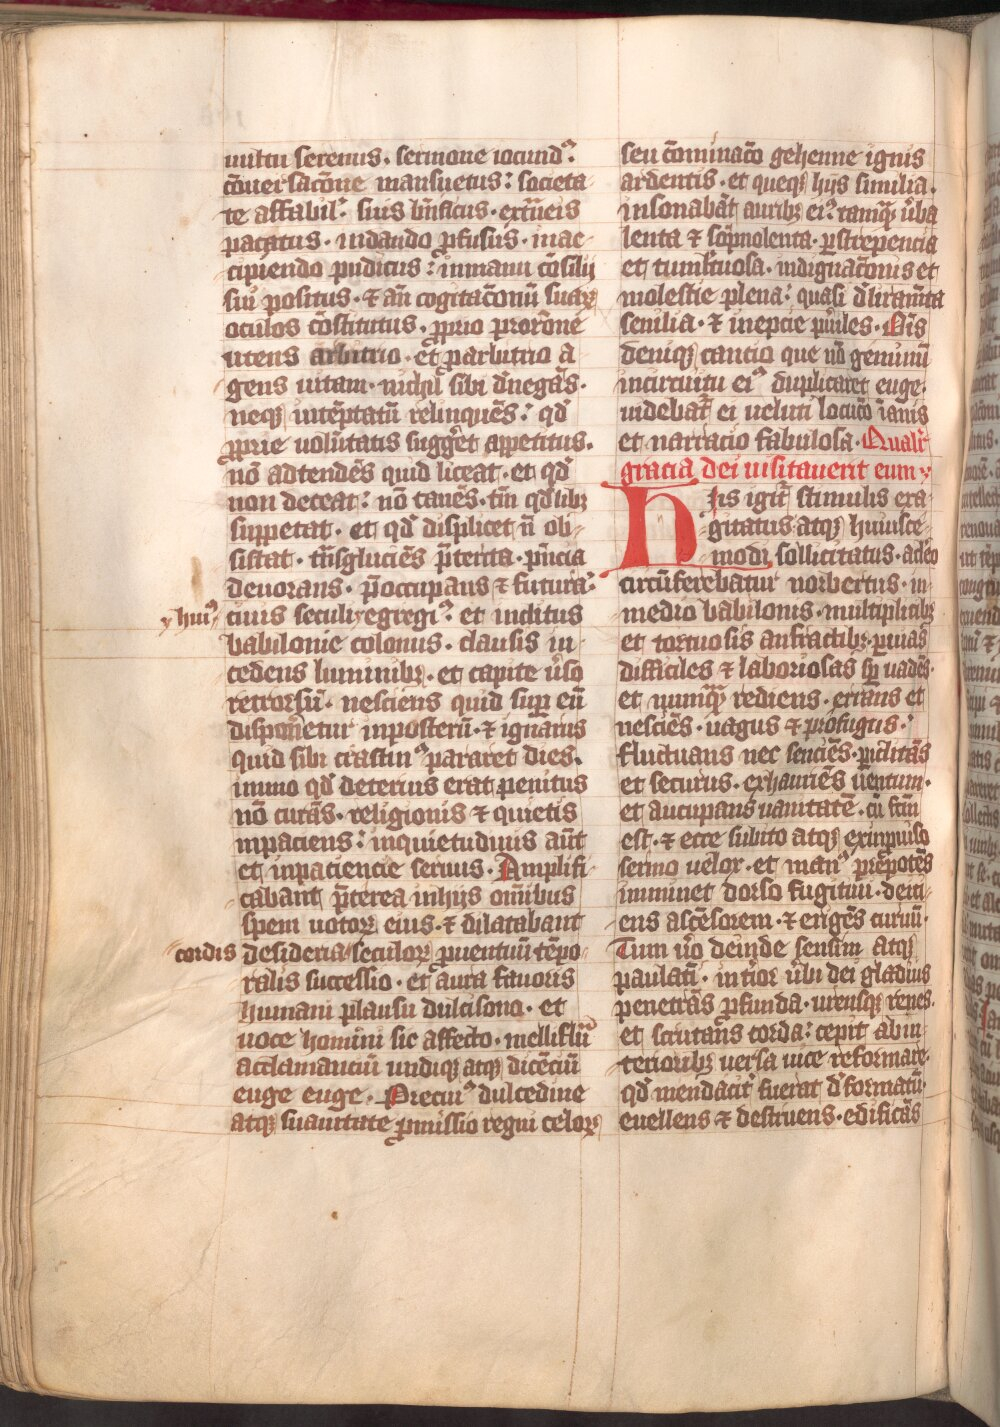 uultu serenus. sermone iocundꝰ
c̄uersac̄one mansuetus: societa-
te affabil'. suis b̄nficus. ext̄neis
pacatus. in dando ꝓfusus. in ac-
cipiendo pudicus: in manu c̄silii
sui positus. ⁊ an̄ cogitac̄onū suaꝝ
oculos c̄stitutus. ꝓprio pro rac̄one
utens arbitrio. et ꝑ arbitrio a-
gens uitam. nichil sibi d̄negās.
neqꝫ intēptatū relinquēs: qd̄
ꝓprie uolūtatis sugḡet appetitus.
nō adtendēs quid liceat. et qd̄
non deceat: nō cauēs. tm̄ qd̄ libꝫ
suppetat. et qd̄ displicet n̄ ob-
sistat. tn̄sgluciēs p̄terita. p̄ncia
deuorans. p̄occupans ⁊ futura:
y huiꝰ
ciuis seculi egregiꝰ et inclitus
babilonie colonus. clausis in-
cedens luminibꝫ. et capite u̓so
retrorsū. nesciens quid suꝑ eū
disponeretur in posterū. ⁊ ignarus
quid sibi crastinꝰ pararet dies.
immo qd̄ deterius erat penitus
nō curās. religionis ⁊ quietis
inpaciens: inquietudinis aūt
et inpaciencie seruus. Amplifi-
cabant p̄terea in hijs omībus
spem uotoꝝ eius. ⁊ dilatabant
cordis desideria seculoꝝ ꝓuentuū tēpo-
ralis successio. et aura fauoris
humani plausu dulcisono. et
uoce homini sic affecto. melliflu
acclamanciū undiqꝫ atqꝫ dicēciū
euge euge. Precuiꝰ dulcedine
atqꝫ suauitate ꝓmissio regni celoꝝ
seu c̄ominac̄o gehenne ignis
ardentis. et queqꝫ hijs similia.
insonabāt auribꝫ eiꝰ tamqꝫ u̓ba
lenta ⁊ sōpnolenta. ꝑstrepencia
et tumltuosa. indignac̄onis et
molestie plena: quasi d̄liramta
senilia. ⁊ inepcie pu̓iles. Nis
deniqꝫ cancio que nō geminū
in circuitu eiꝰ duplicaret euge.
uidebat̄ ei ueluti locuc̄o īanis
et narracio fabulosa. Qualit̄
gracia dei uisitauerit eum
His igit̄ stimulis exa-
gitatus atqꝫ huiusce-
modi sollicitatus. adeo
circūferebatur norbertus. in
medio babilonis. multiplicibꝫ
et tortuosis anfractibꝫ. ꝑ uias
difficiles ⁊ laboriosas sꝑ uadēs.
et nunqꝫ rediens. errans et
nesciēs. uagus ⁊ profugus.
fluctuans nec senciēs. ꝑiclitās
et securus. exhauriēs uentum.
et aucupans uanitatē. cū fcm̄
est. ⁊ ecce subito atqꝫ ex inpuiso
sermo uelox. et manꝰ prepotēs
imminet dorso fugitiui. deici-
ens ascēsorem. ⁊ erigēs curuū.
Tum u̓o deinde sensim atqꝫ
paulatī. intior u̓bi dei gladius
penetrās ꝓfunda. urensqꝫ renes.
et scrutans corda: cepit ab in-
terioribꝫ uersa uice reformare.
qd̄ mendacit̄ fuerat d̄formatū.
euellens ⁊ destruens. edificās